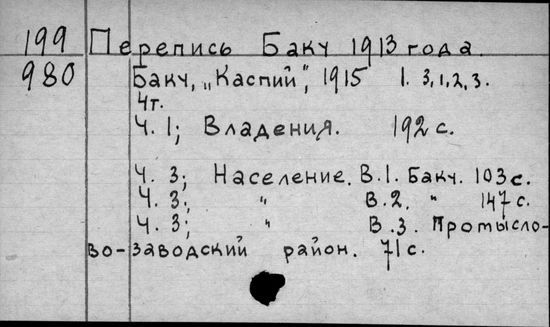 199 Перепись Баку 1913 года.
980 Баку, „Каспий", 1915 1. 3,1,2,3.
4т.
Ч. 1; Владения. 192 с.
Ч. 3; Население. В.1. Баку. 103 с.
Ч. 3; " В.2. " 147 с.
Ч. 3; " В.3. Промысло-
во-заводский район. 71 с.